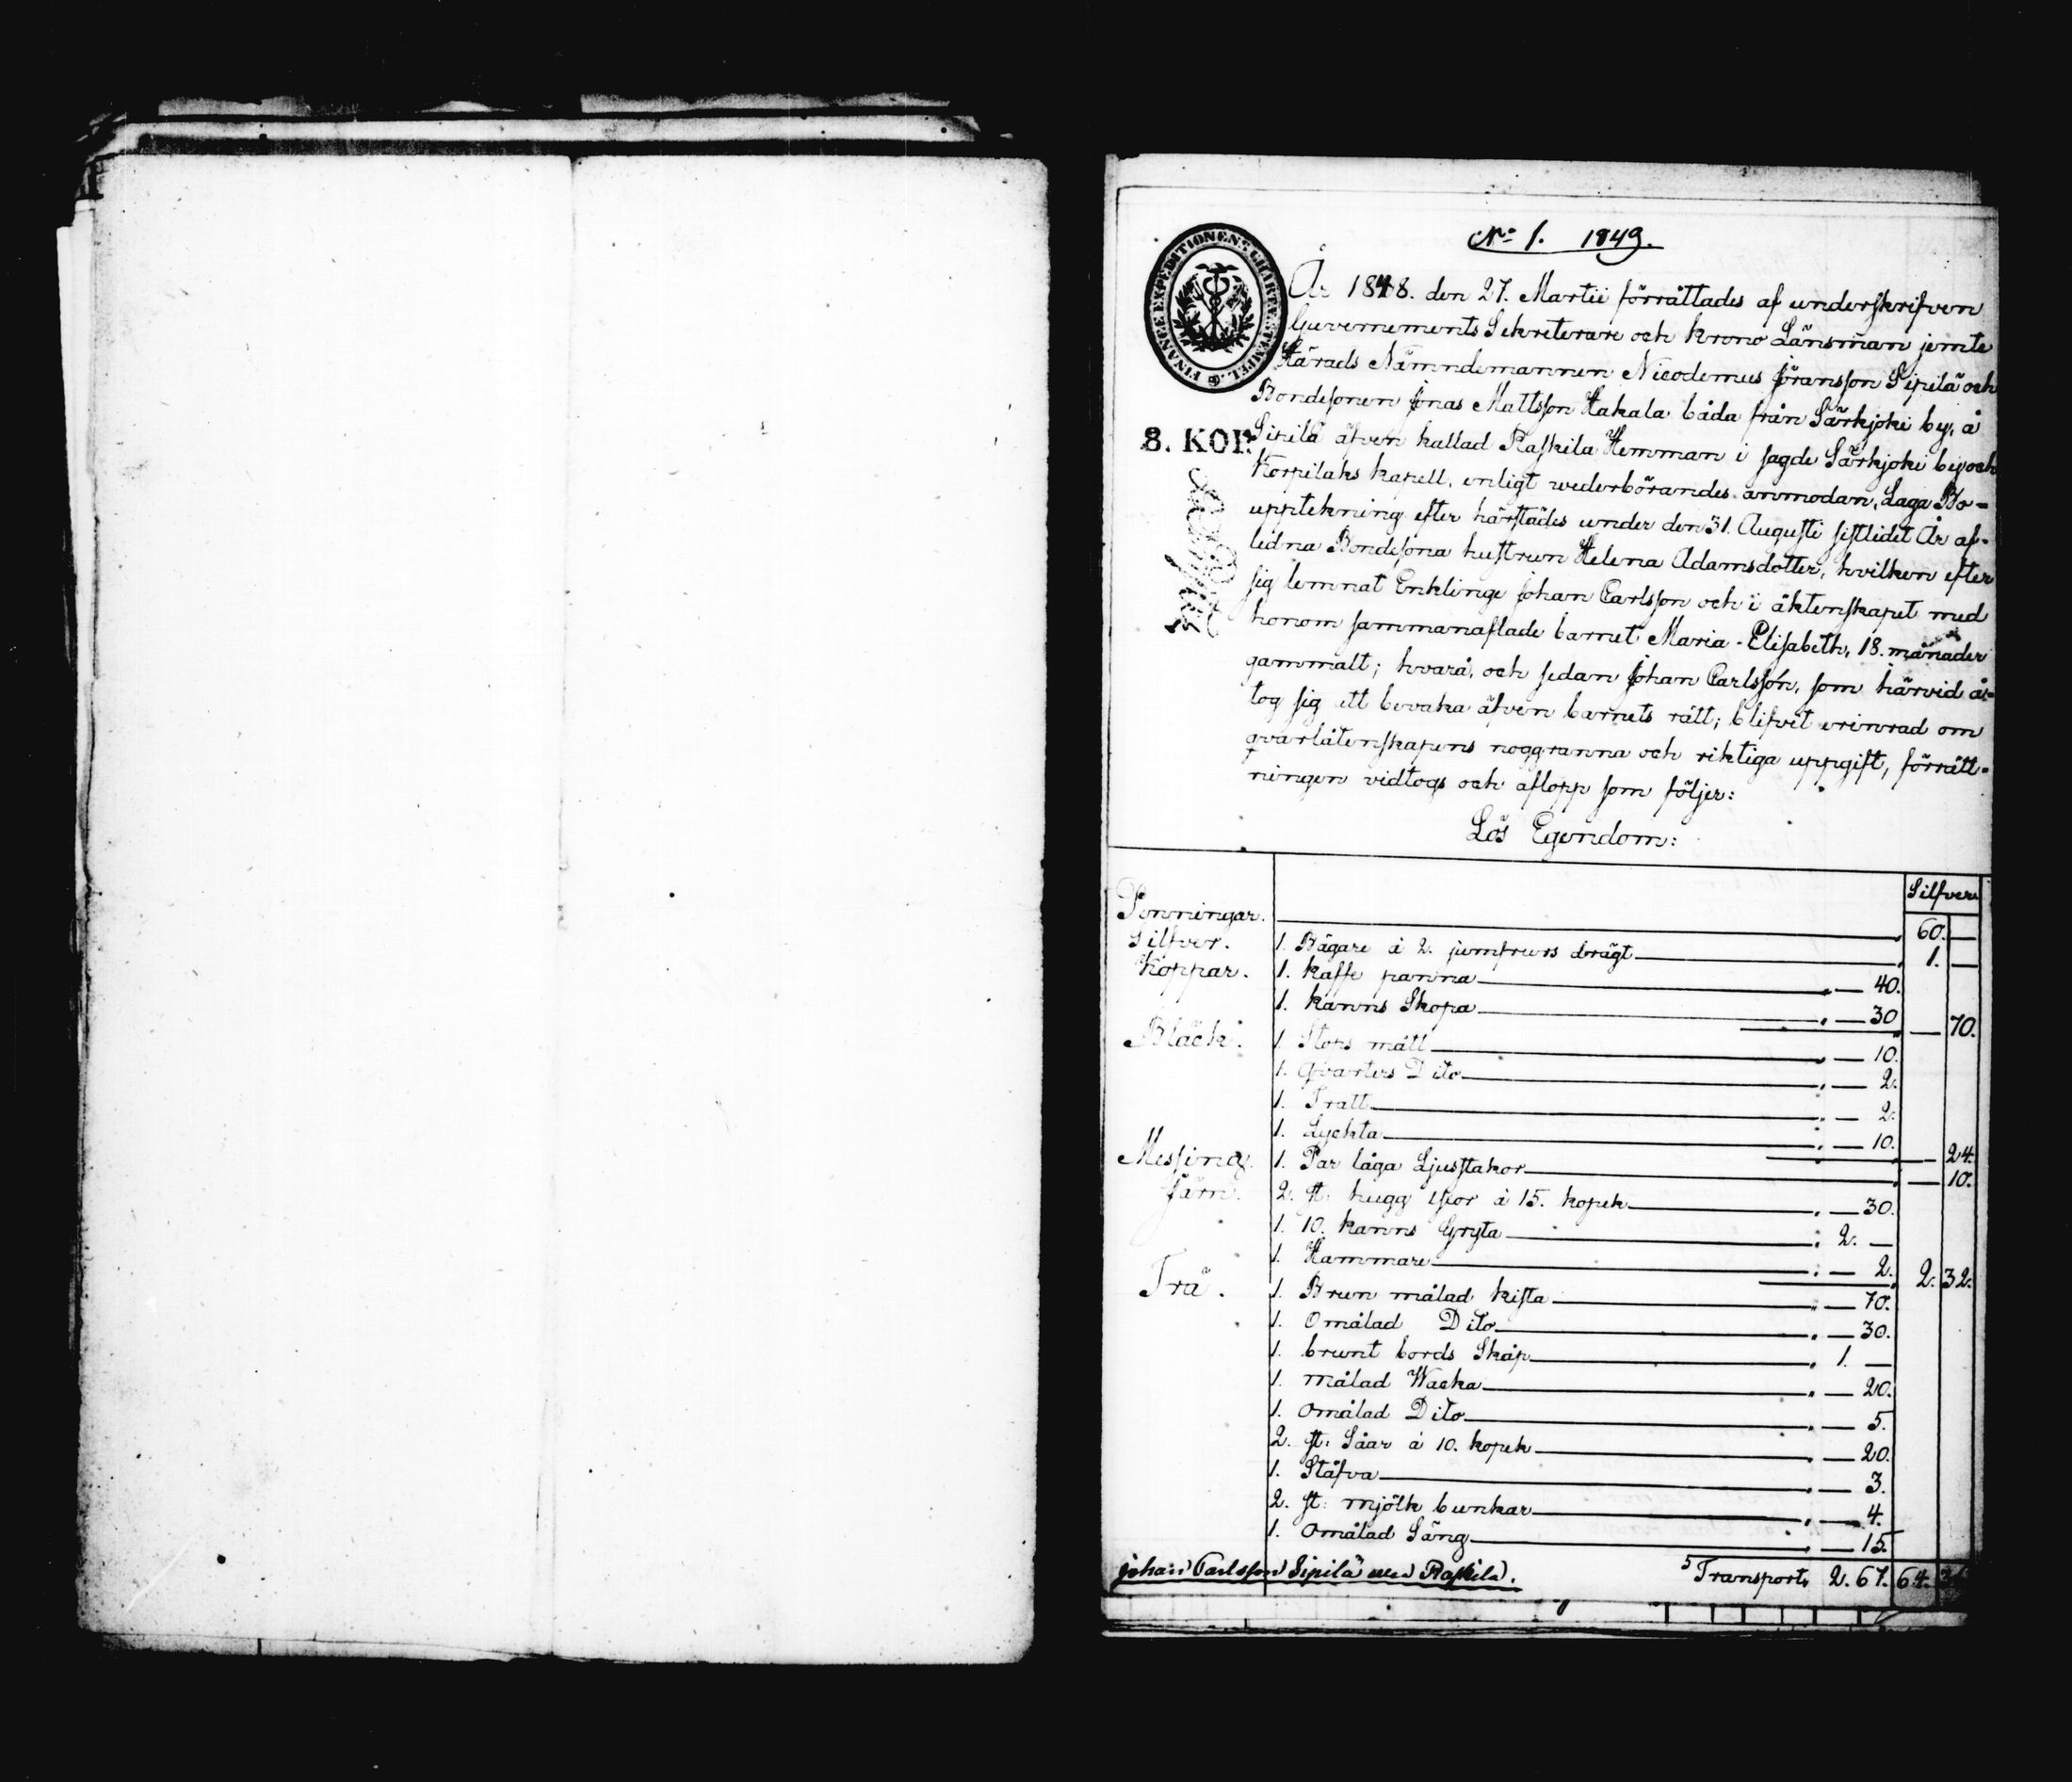 No 1. 1849.
FINANCE EXPEDITIONENS CHARTÆ STEMPEL.
År 1848. den 27. Martii förrättades af underskrifven
Guvernements Sekreterare och Krono Länsman jemte
Härads Nämndemannen Nicodemus Jöransson Sipilä och
Bondesonen Jonas Mattsson Hakala båda från Särkjoki by, å
8. KOP.
Sipilä äfven kallad Raskila Hemman i sagde Särkjoki by och
Korpilaks kapell, enligt wederbörandes anmodan, Laga Bo-
uppteckning efter härstädes under den 31 Augusti sistlidet År af-
lidna Bondesona hustrun Helena Adamsdotter, hvilken efter
sig lemnat Enklinge Johan Carlsson och i äktenskapet med
honom sammanaflade barnet Maria-Elisabeth, 18. månader
gammalt; hvarå, och sedan Johan Carlsson, som härvid å-
tog sig att bevaka äfven barnets rätt; blifvit erinrad om
qvarlåtenskapens noggranna och riktiga uppgift, förrätt-
ningen vidtogs och aflopp som följer:
Lös Egendom:
Silfver
Penningar. 60. —
Silfver. 1. Bägare à 2. jumfrurs drägt 1. —
Koppar. 1. kaffe panna — 40.
1. kanns Skopa — 30 — 70.
Bläck. 1. Stops mått — 10.
1. qvarters Dito — 2.
1. Tratt — 2.
1. Lyckta — 10. — 24.
Messing. 1. Par låga Ljusstakor — 10.
Järn. 2. st. hugg yxor à 15. kopek — 30.
1. 10. kanns Gryta 2. —
1. Hammare — 2. 2. 32.
Trä. 1. Brun målad kista — 70.
1. Omålad Dito — 30.
1. brunt bords Skåp 1. —
1. målad Wacka — 20.
1. omålad Dito — 5.
2. st. Såar à 10. kopek — 20.
1. Stäfva — 3.
2. st. mjölk bunkar — 4.
1. omålad Säng — 15.
Johan Carlsson Sipilä Raskila. Transport 2. 67. 64.